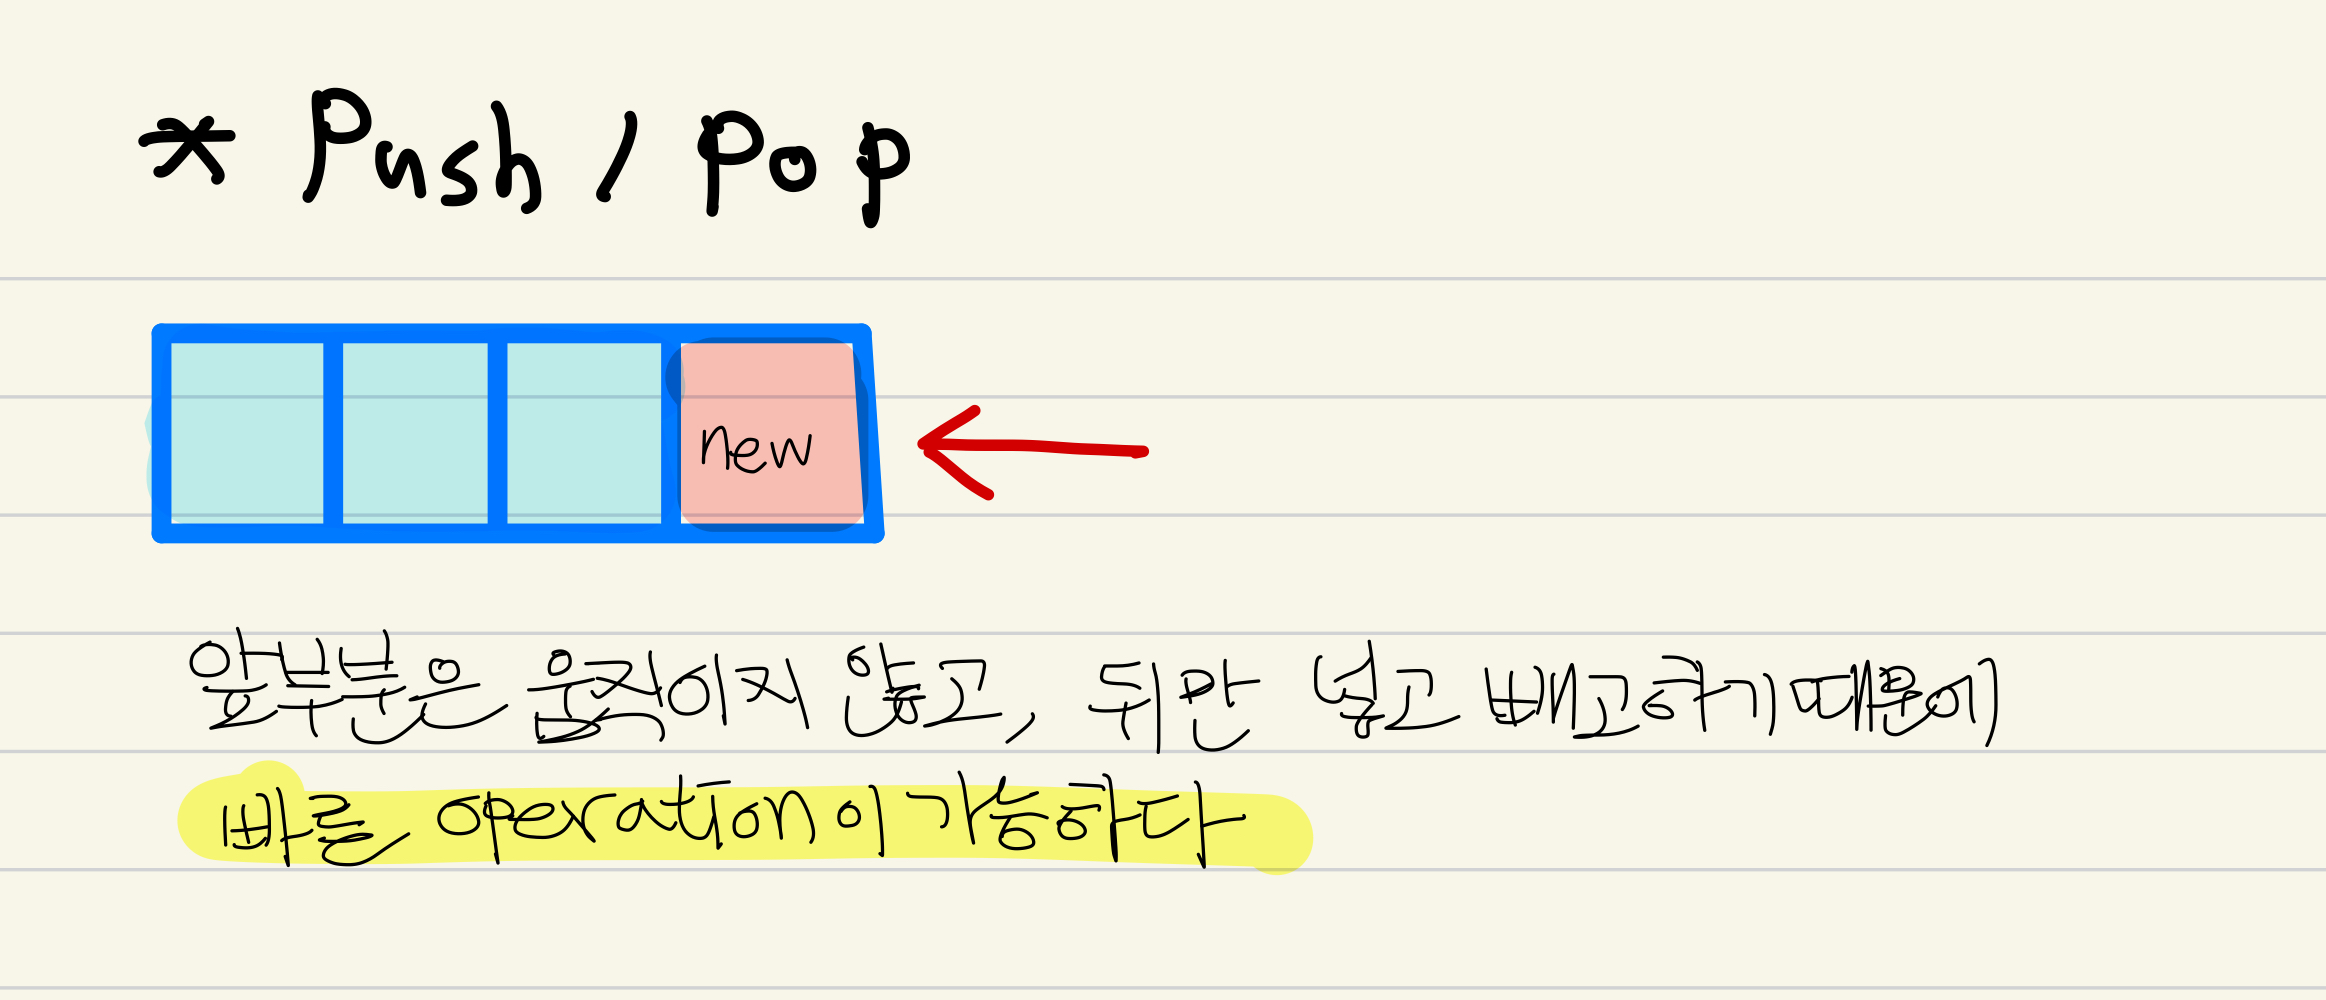 * Push / Pop
new
앞부분은 움직이지 않고, 뒤만 넣고 빼고하기 때문에
빠른 operation이 가능하다